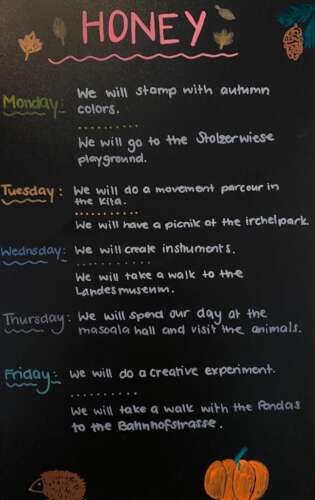 HONEY
Monday: We will stamp with autumn
colors.
We will go to the Stolzerwiese
playground.
Tuesday: We will do a movement parcour in
the Kita.
We will have a picnik at the irchelpark.
Wednsday: We will create instuments.
We will take a walk to the
Landesmuseum.
Thursday: We will spend our day at the
masoala hall and visit the animals.
Friday: We will do a creative experiment.
We will take a walk with the Pandas
to the Bahnhofstrasse.